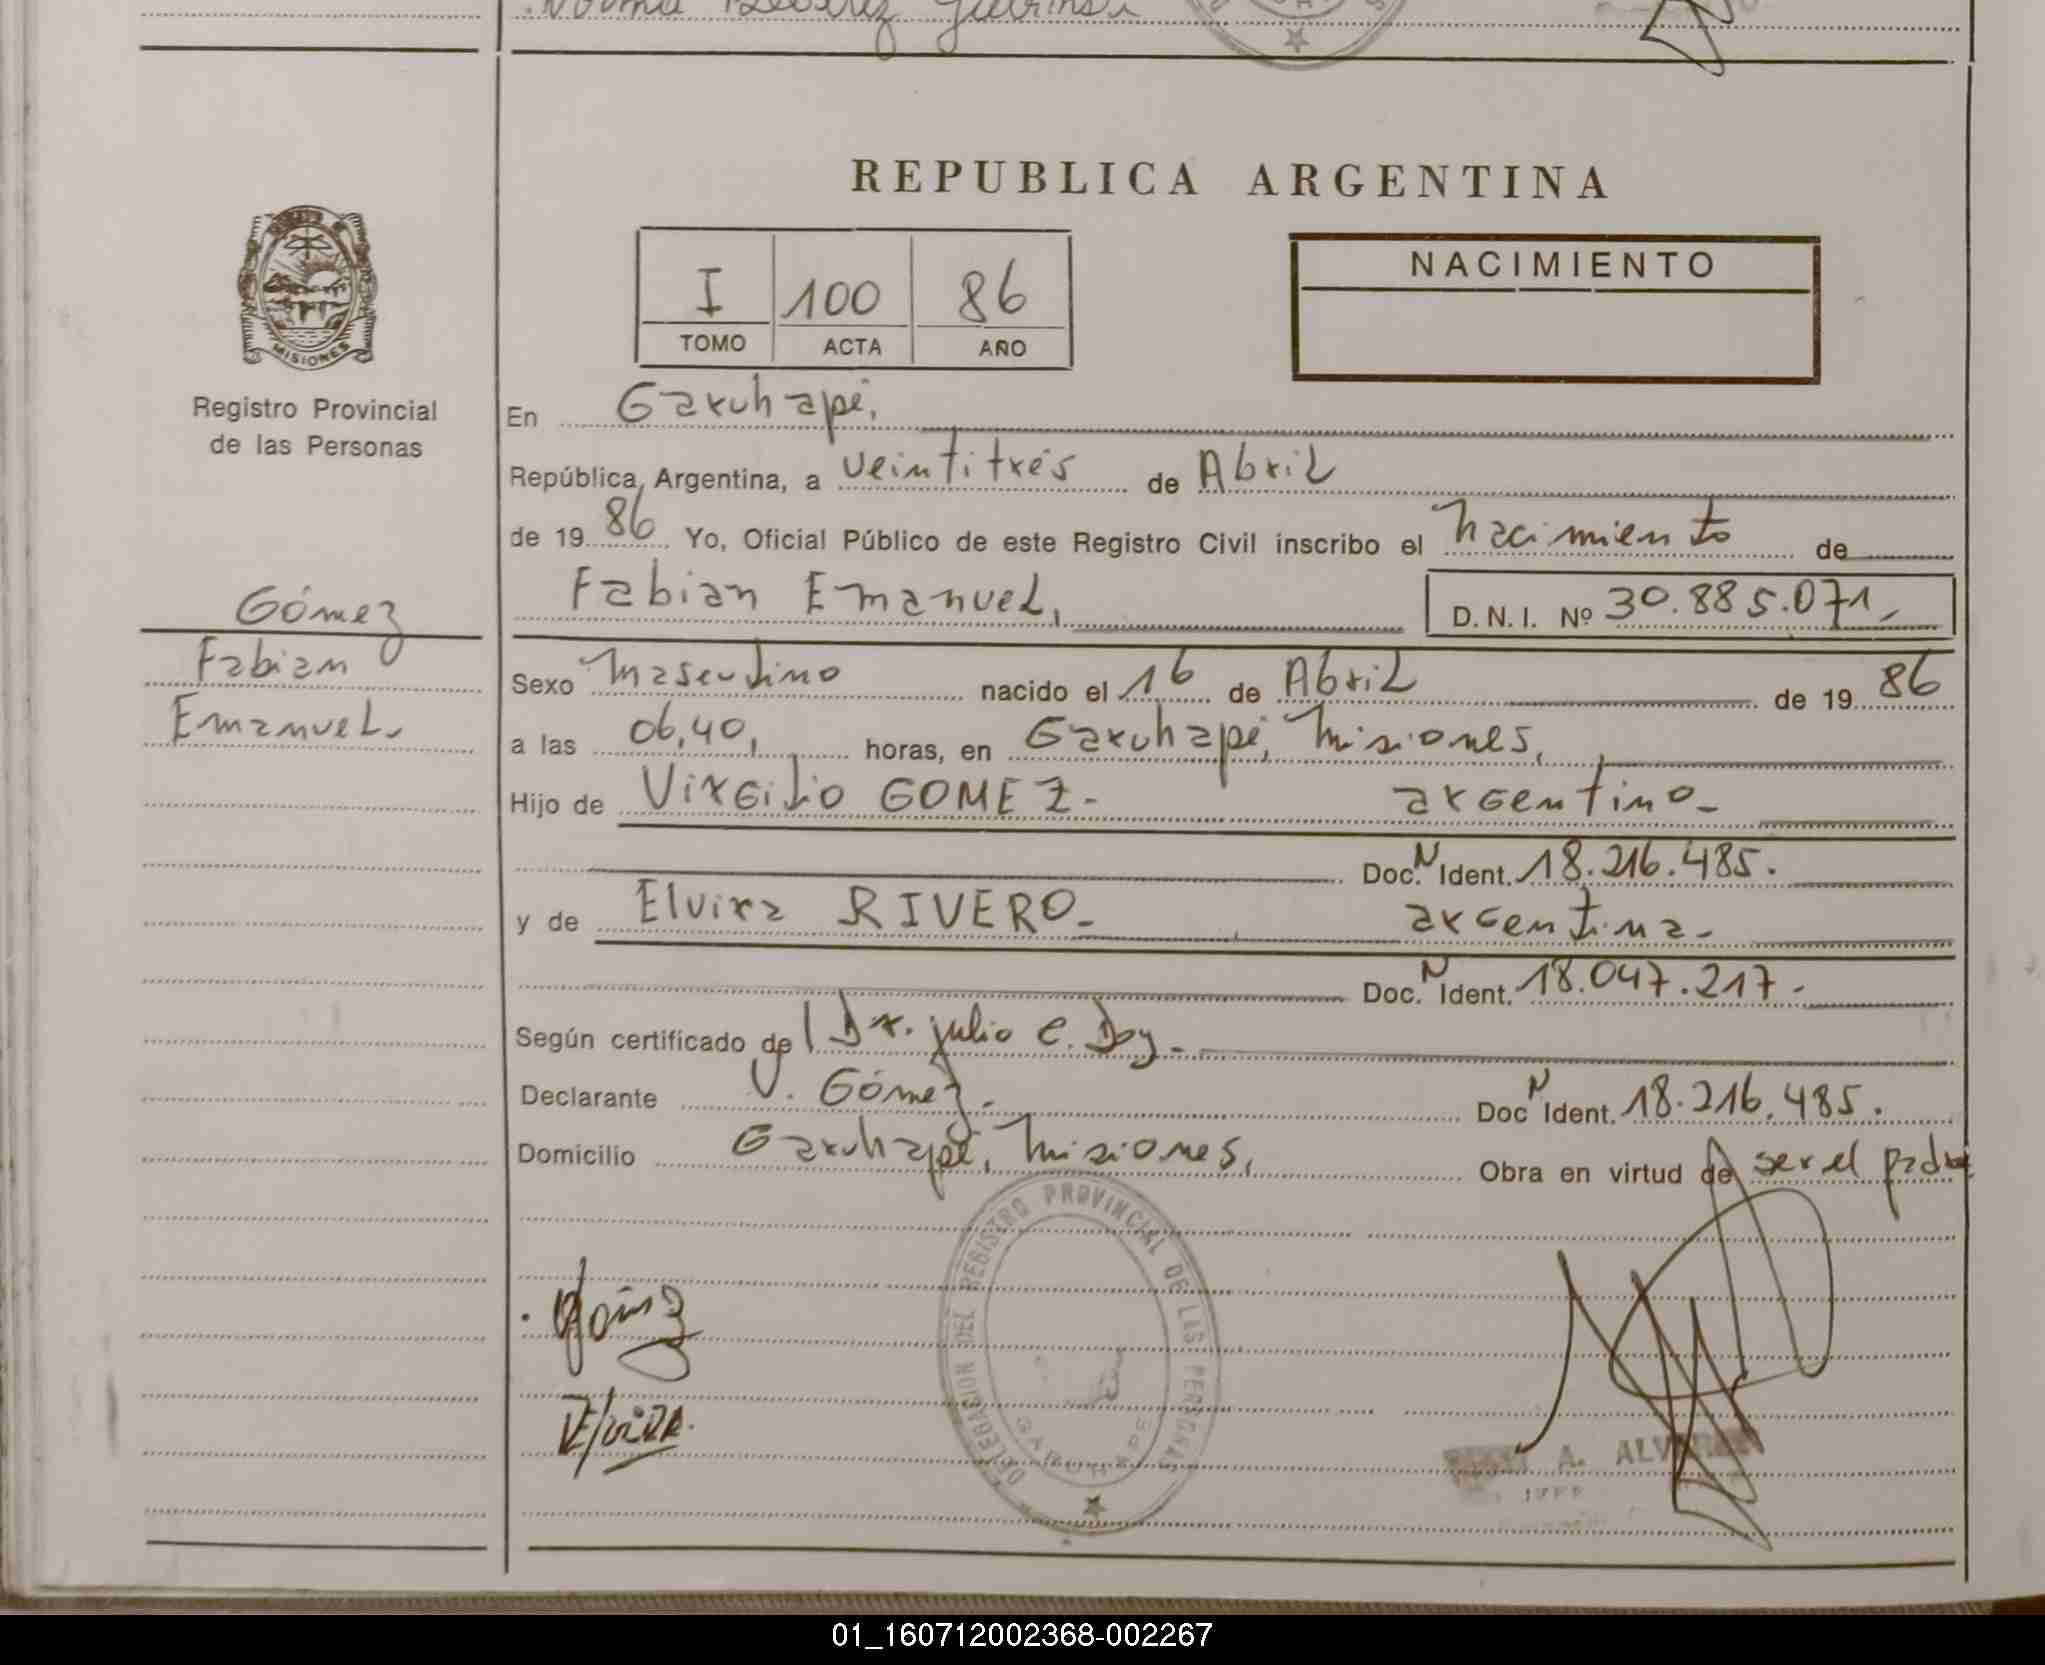 REPUBLICA ARGENTINA
MISIONES
Registro Provincial
de las Personas
I 100 86
TOMO ACTA AÑO
NACIMIENTO
En Garuhapé,
República Argentina, a veintitrés de Abril
de 19 86 Yo, Oficial Público de este Registro Civil inscribo el nacimiento de
Fabian Emanuel, D.N.I. Nº 30.885.071,
Gómez
Fabian
Emanuel.
Sexo masculino nacido el 16 de Abril de 19 86
a las 06,40, horas, en Garuhapé, Misiones,
Hijo de Virgilio GOMEZ- argentino-
Doc. N Ident. 18.216.485.
y de Elvira RIVERO- argentina-
Doc. N Ident. 18.047.217-
Según certificado de Dr. julio C. Doy-
Declarante V. Gómez. Doc N Ident. 18.216.485.
Domicilio Garuhapé, Misiones, Obra en virtud de ser el padre
DELEGACION DEL REGISTRO PROVINCIAL DE LAS PERSONAS
GARUHAPE
Elvira.
A.
01_160712002368-002267